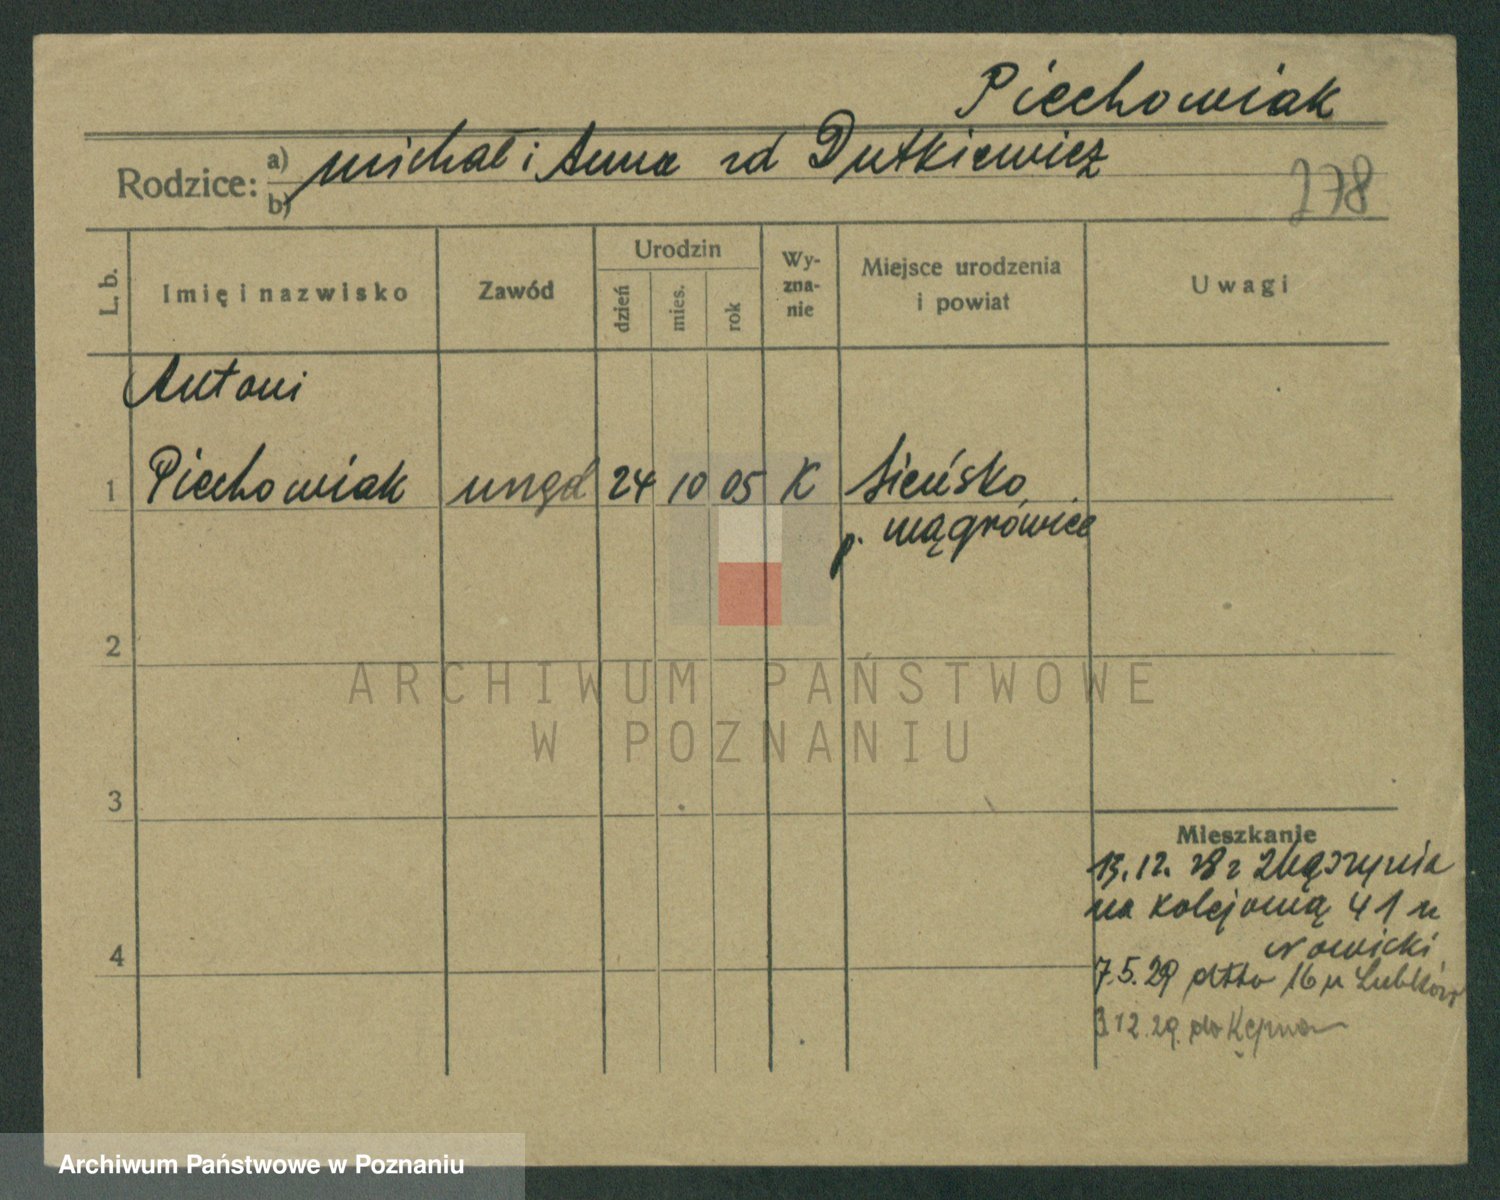 Piechowiak
Rodzice: a) Michał i Anna zd Dutkiewicz
b)
278
L. b.
Imię i nazwisko
Zawód
Urodzin
dzień
mies.
rok
Wy-
zna-
nie
Miejsce urodzenia
i powiat
Uwagi
Antoni
1 Piechowiak urzęd 24 10 05 K Sieńsko
p. Wągrówiec
2
ARCHIWUM PAŃSTWOWE
W POZNANIU
3
Mieszkanie
13.12.28 z Zbąszynia
na Kolejową 41 u
Nowicki
4
7.5.29 dtto 16 u
3.12.29. do Kępna
Archiwum Państwowe w Poznaniu